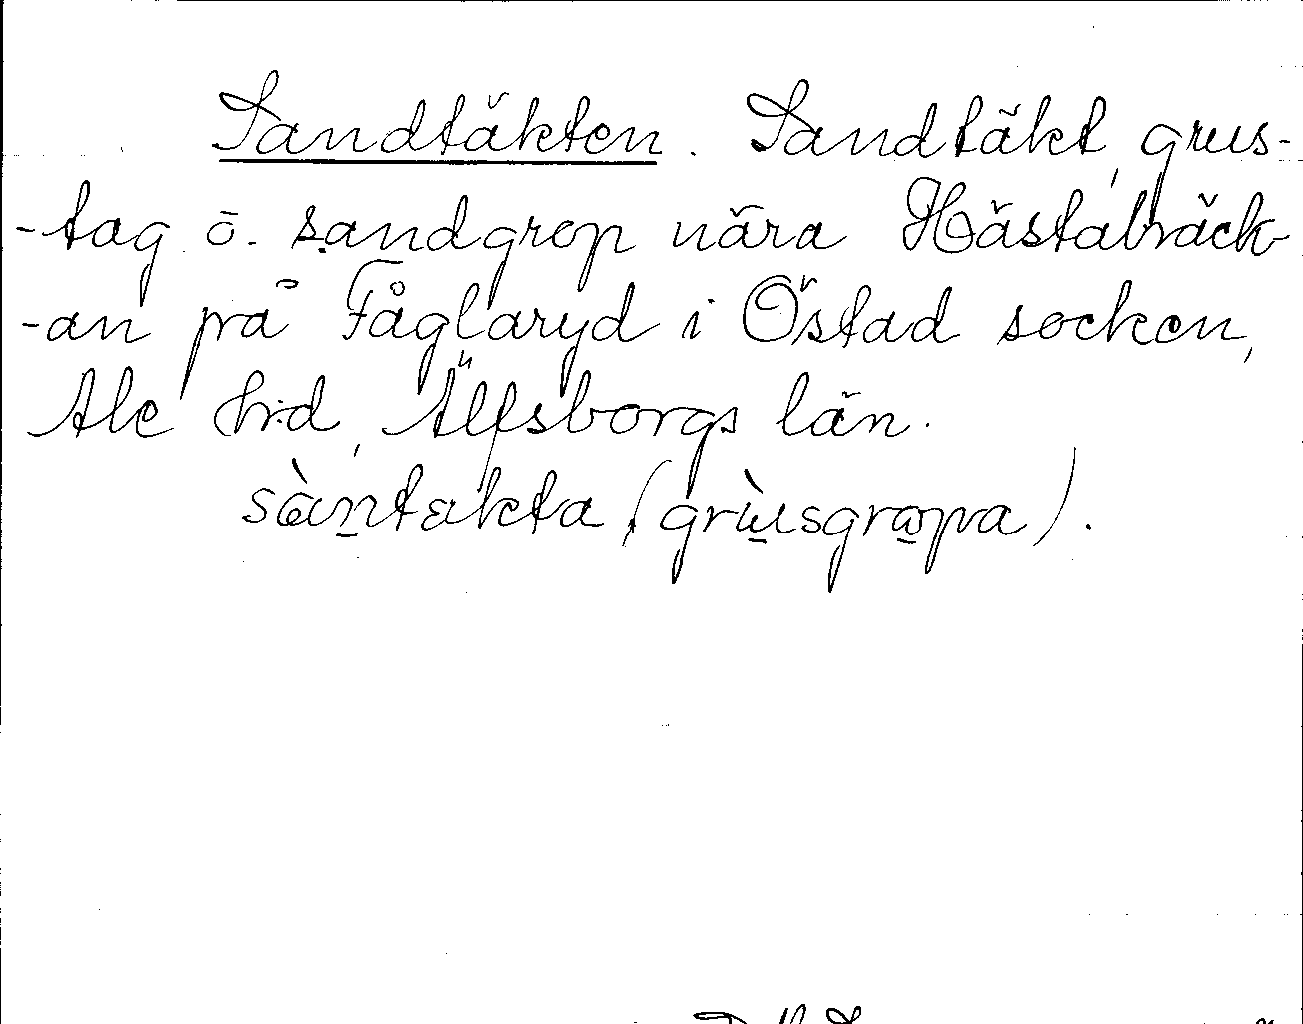 Sandtäkten. Sandtäkt, grus-
-tag o. sandgrop nära Hästabäck-
-an på Fåglaryd i Östad socken,
Ale h:d, Älfsborgs län.
sàntäkta (grùusgropa).